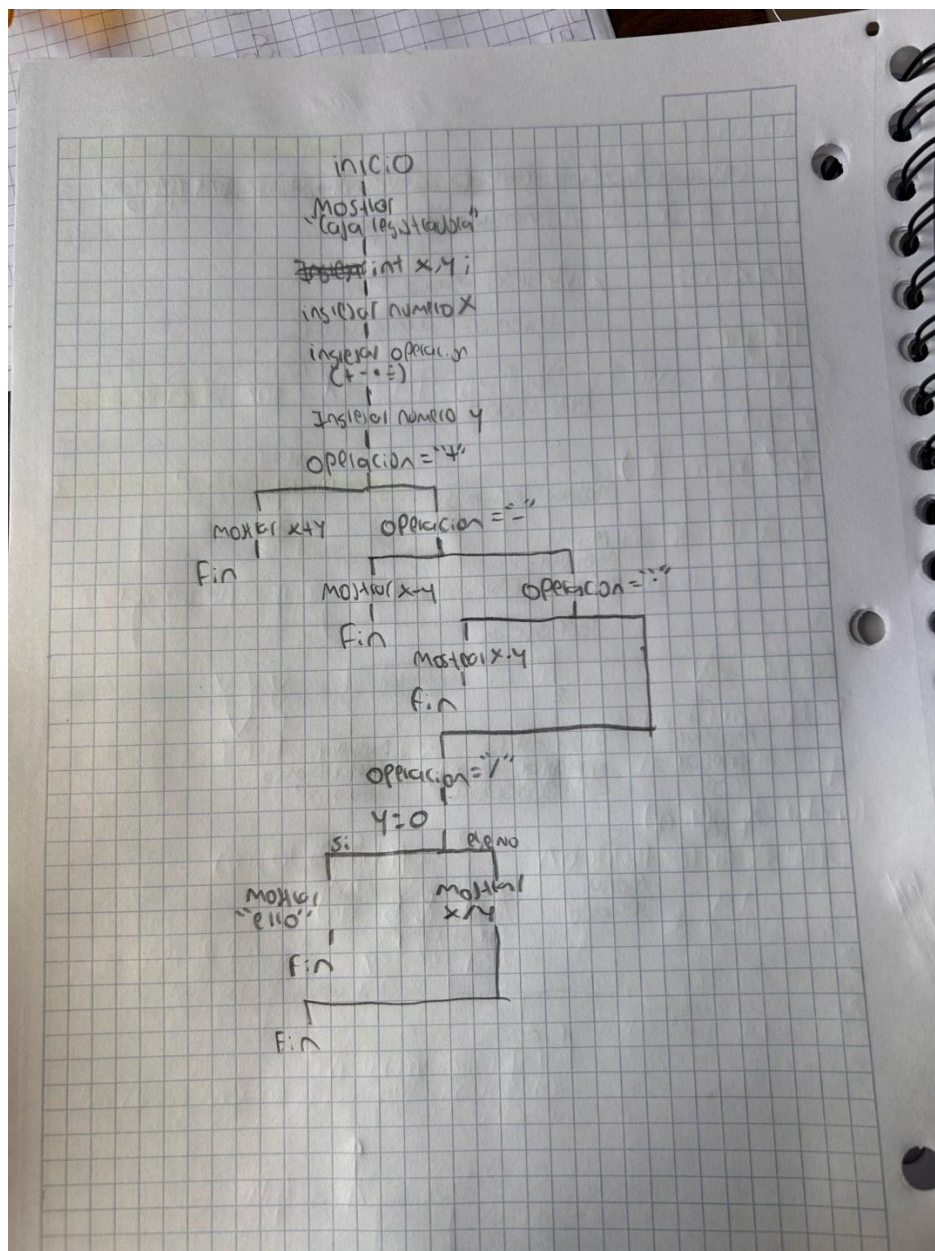 inicio
Mostrar
"Caja registradora"
int x,y;
ingresar numero x
ingresar operacion
(+ - • ÷)
Ingresar numero y
operacion = "+"
mostrar x+y operacion = "-"
Fin
Mostrar x-y operacion = "·"
fin
Mostrar x·y
fin
operacion = "/"
y=0
Si else NO
Mostrar Mostrar
"error" x/y
Fin
Fin